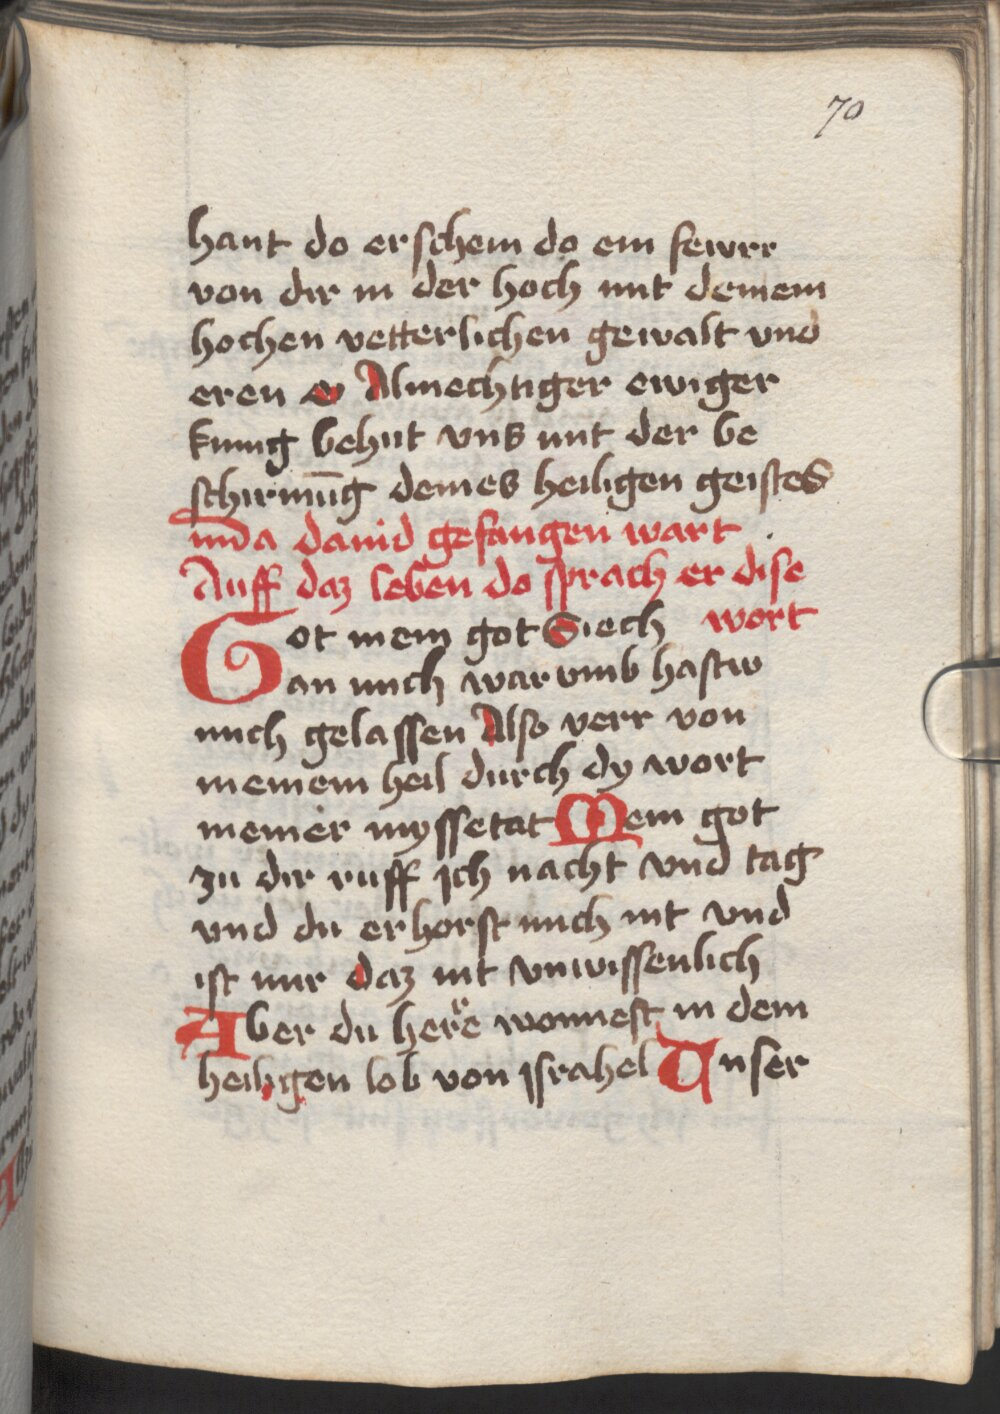 70
hant do erschein do ein fewrr
von dir in der hoch mit deinem
hochen vetterlichen gewalt vnd
eren o Almechtiger ewiger
kunig behut vns mit der be
schirmūg deines heiligen geistes
dauid gefangen wart
Auff daz leben do sprach er dise
wort
Got mein got Siech
an mich war vmb hastw
mich gelassen Also verr von
meinem heil durch dy wort
meiner myssetat Mein got
zu dir ruff ich nacht vnd tag
vnd du erhorst mich nit vnd
ist mir daz nit vnwissenlich
Aber du herre wonnest in dem
heiligen lob von israhel Vnser